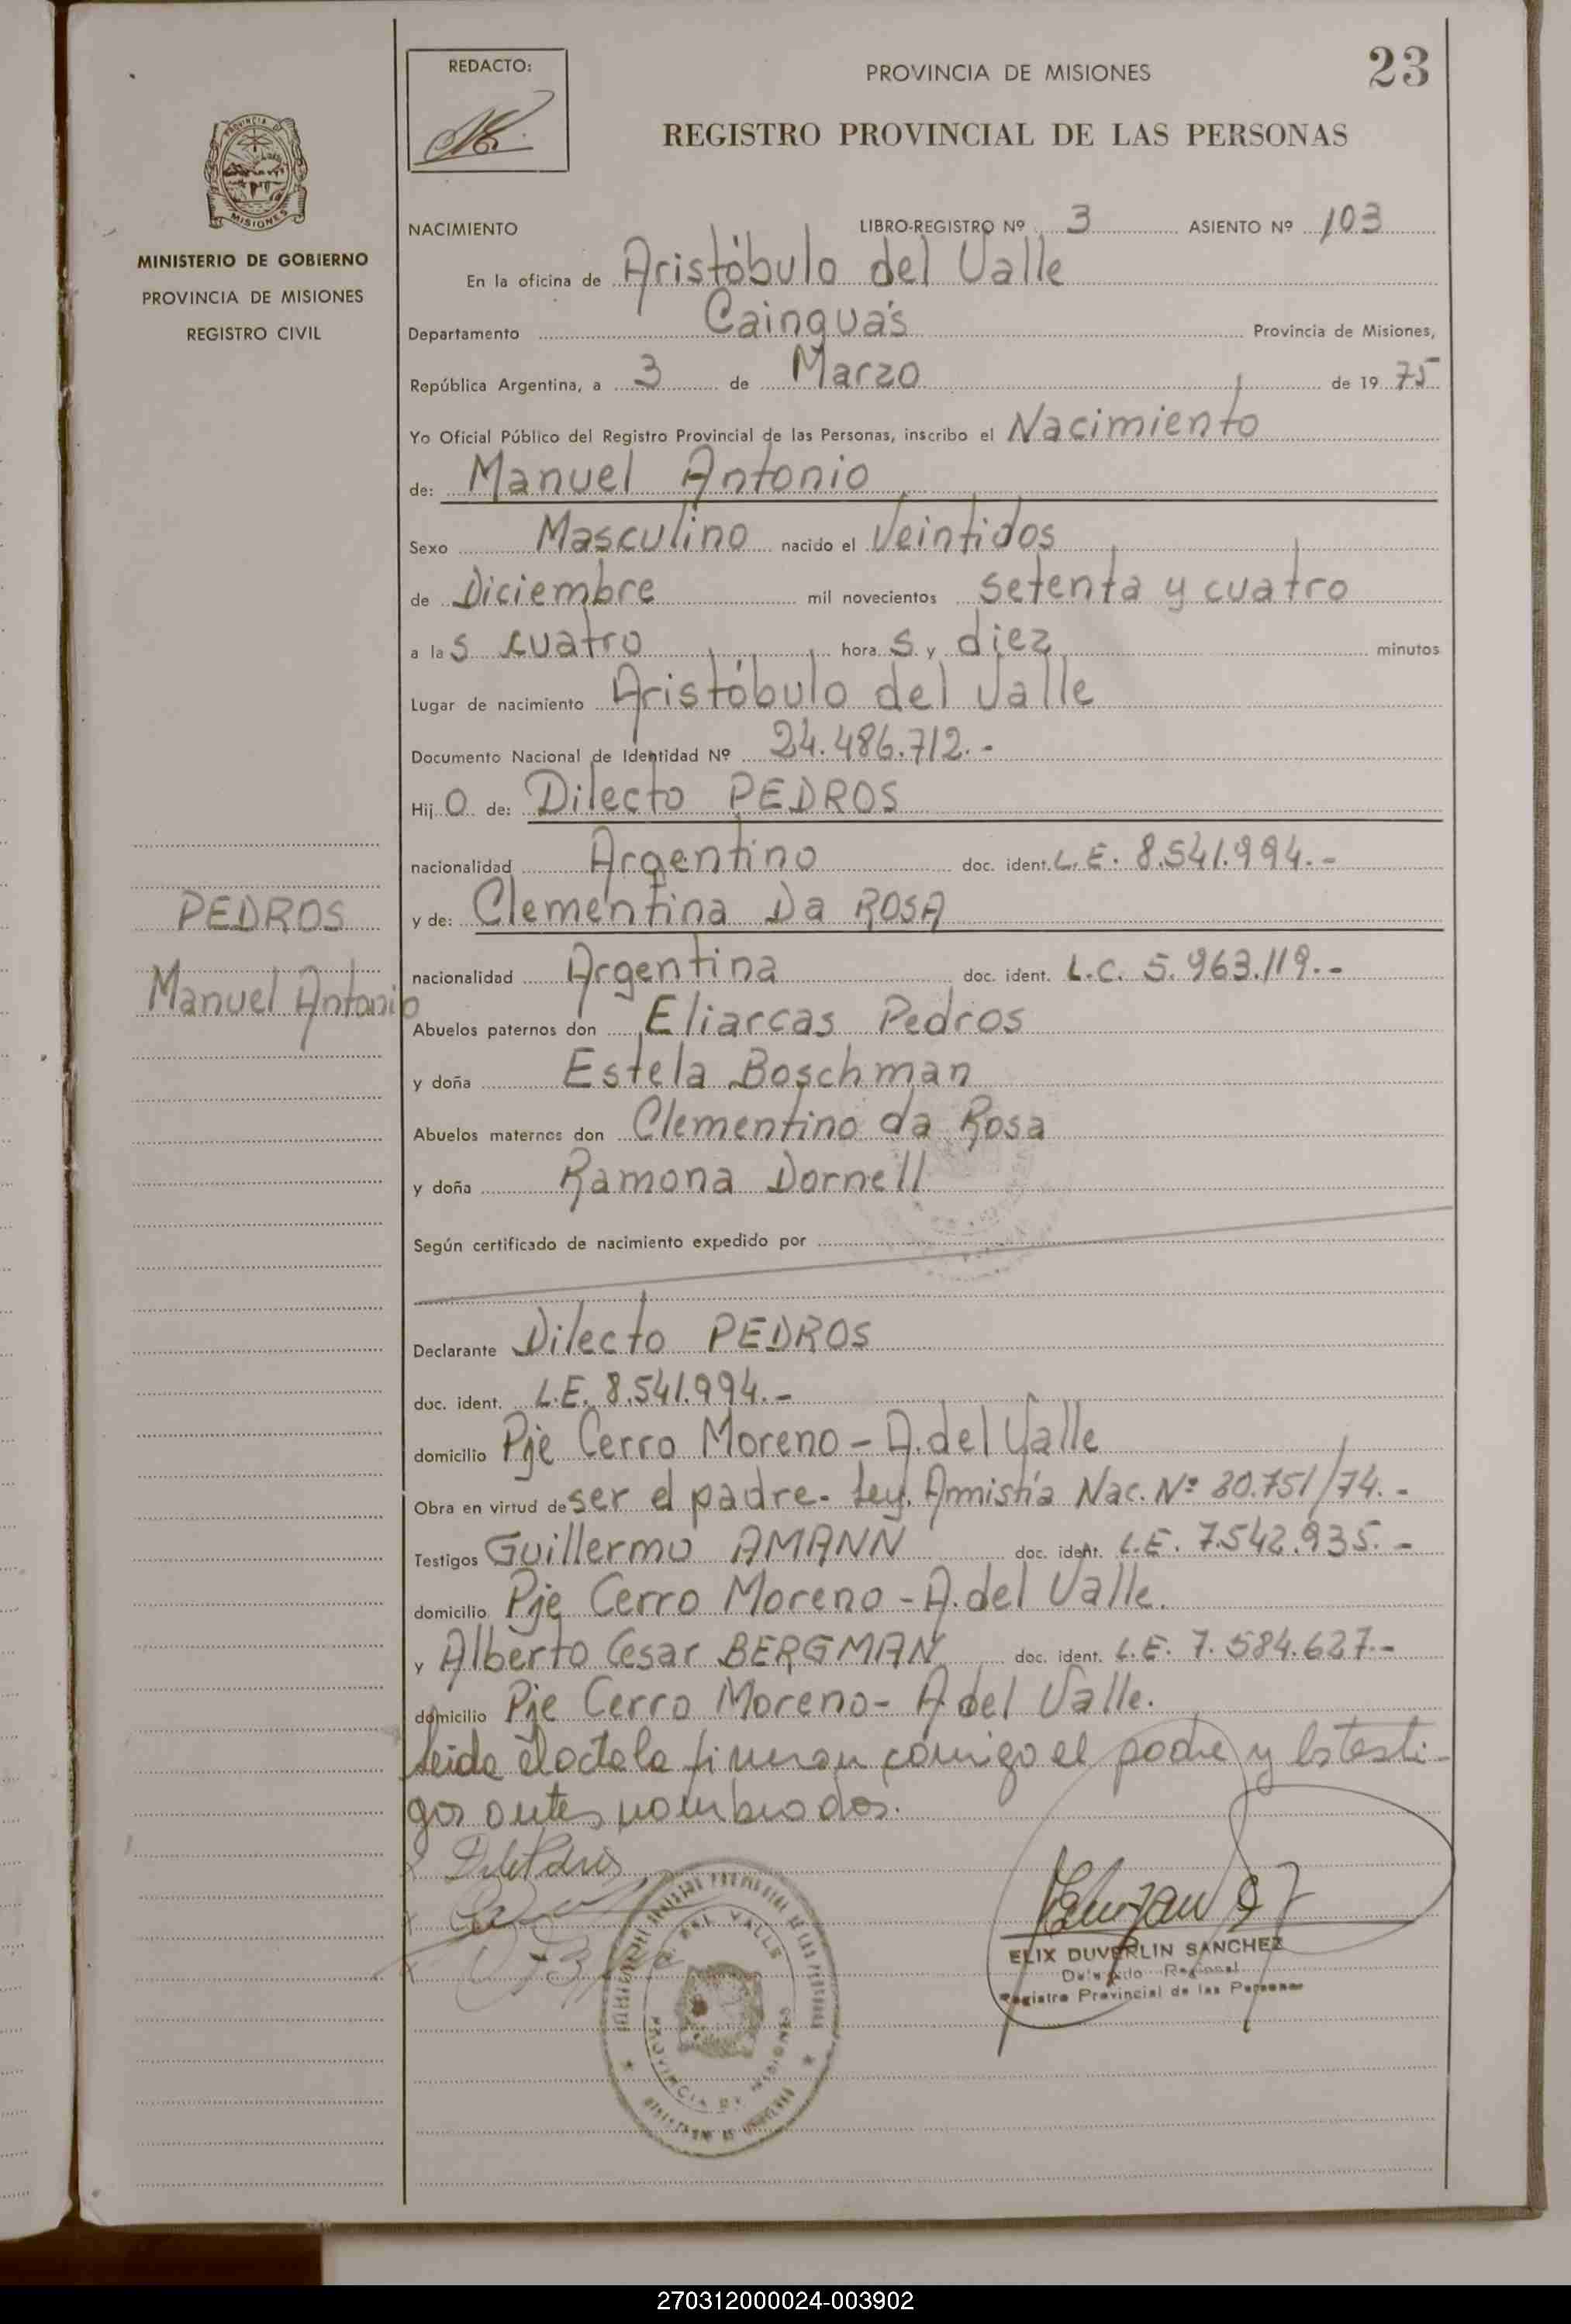 23
REDACTO:
PROVINCIA DE MISIONES
REGISTRO PROVINCIAL DE LAS PERSONAS
PROVINCIA DE
MISIONES
MINISTERIO DE GOBIERNO
PROVINCIA DE MISIONES
REGISTRO CIVIL
NACIMIENTO LIBRO-REGISTRO Nº 3 ASIENTO Nº 103
En la oficina de Aristóbulo del Valle
Departamento Cainguás Provincia de Misiones,
República Argentina, a 3 de Marzo de 19 75
Yo Oficial Público del Registro Provincial de las Personas, inscribo el Nacimiento
de: Manuel Antonio
Sexo Masculino nacido el Veintidos
de Diciembre mil novecientos setenta y cuatro
a las cuatro horas y diez minutos
Lugar de nacimiento Aristóbulo del Valle
Documento Nacional de Identidad Nº 24.486.712.-
Hijo de: Dilecto PEDROS
nacionalidad Argentino doc. ident. L.E. 8.541.994.-
y de: Clementina Da ROSA
PEDROS
nacionalidad Argentina doc. ident. L.C. 5.963.119.-
Manuel Antonio
Abuelos paternos don Eliarcas Pedros
y doña Estela Boschman
Abuelos maternos don Clementino da Rosa
y doña Ramona Dornell
Según certificado de nacimiento expedido por
Declarante Dilecto PEDROS
doc. ident. L.E. 8.541.994.-
domicilio Pje Cerro Moreno - A. del Valle
Obra en virtud de ser el padre. Ley. Amnistía Nac. Nº 20.751/74.-
Testigos Guillermo AMANN doc. ident. L.E. 7.542.935.-
domicilio Pje Cerro Moreno - A. del Valle.
y Alberto Cesar BERGMAN doc. ident. L.E. 7.584.627.-
domicilio Pje Cerro Moreno - A del Valle.
Leida el acta la firman conmigo el padre y los testi-
gos antes nombrados.
A. DEL VALLE
PROVINCIA DE MISIONES
ELIX DUVERLIN SANCHEZ
Delegado Regional
Registro Provincial de las Personas
270312000024-003902